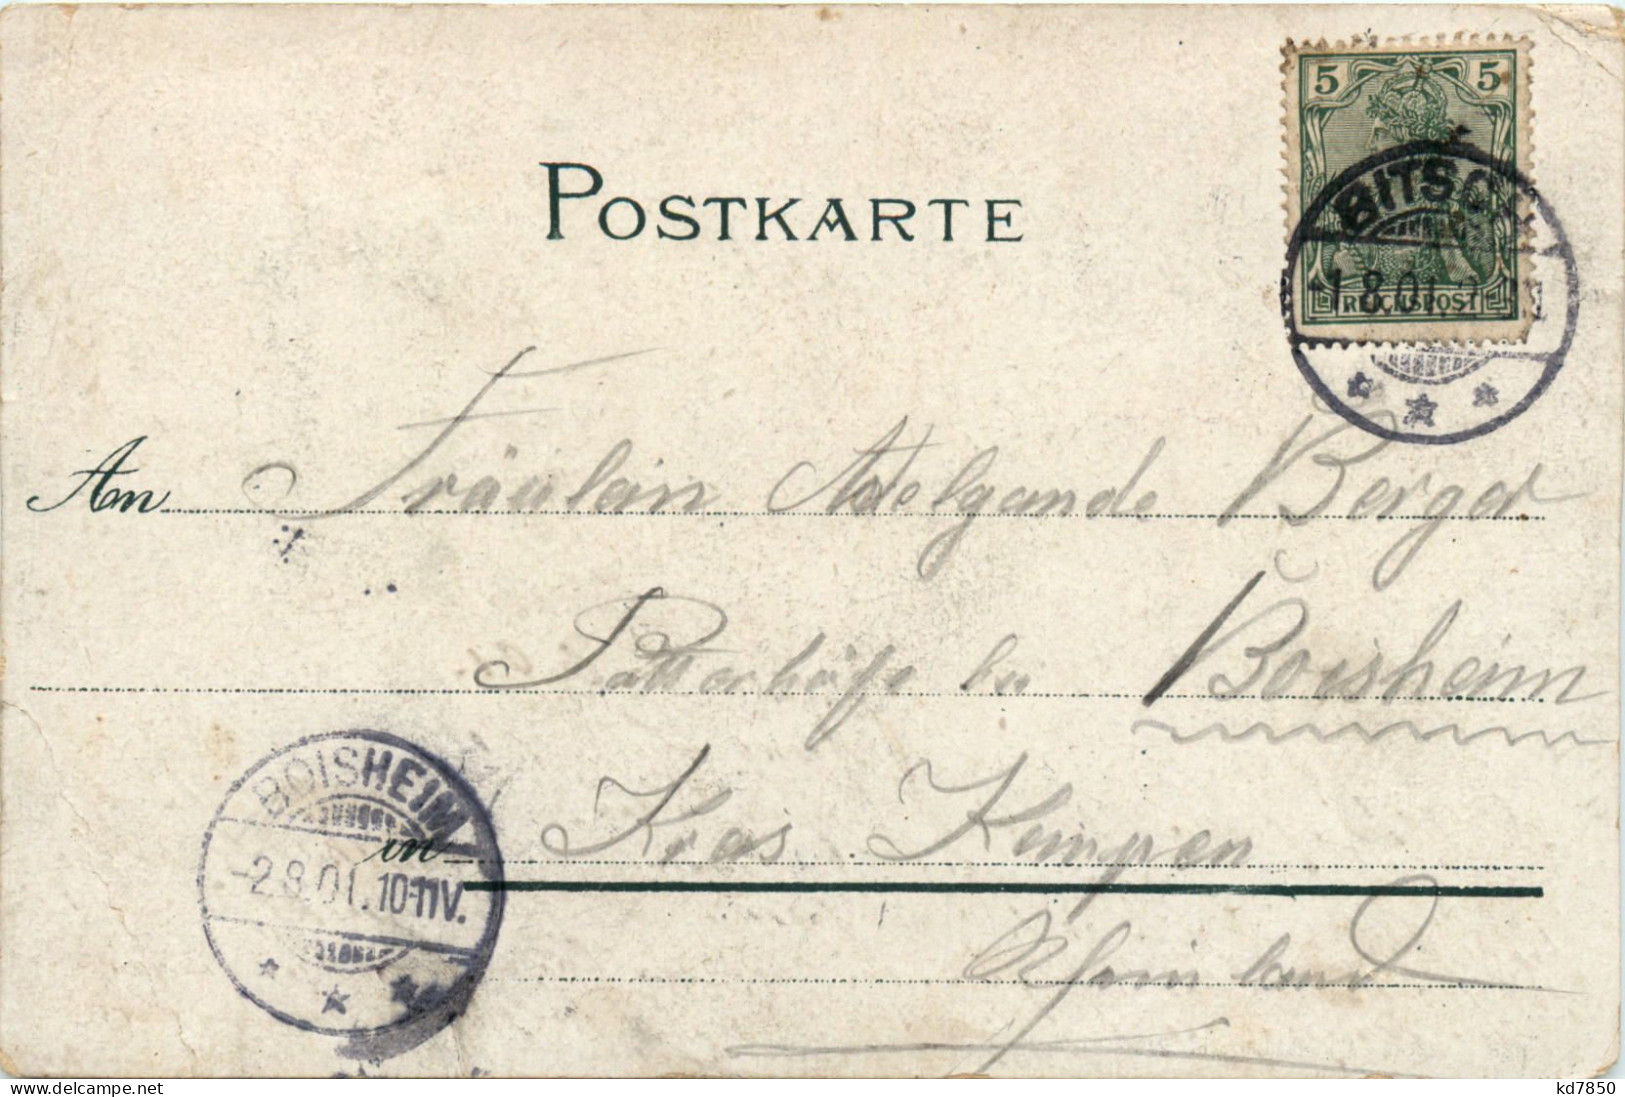 5 5
POSTKARTE
BITSCH
-1.8.01.
REICHSPOST
An Fräulein Adelgande Berger
bei Boisheim
BOISHEIM
-2.8.01.10-11V.
in Kreis Kempen
Rheinland
kd7850